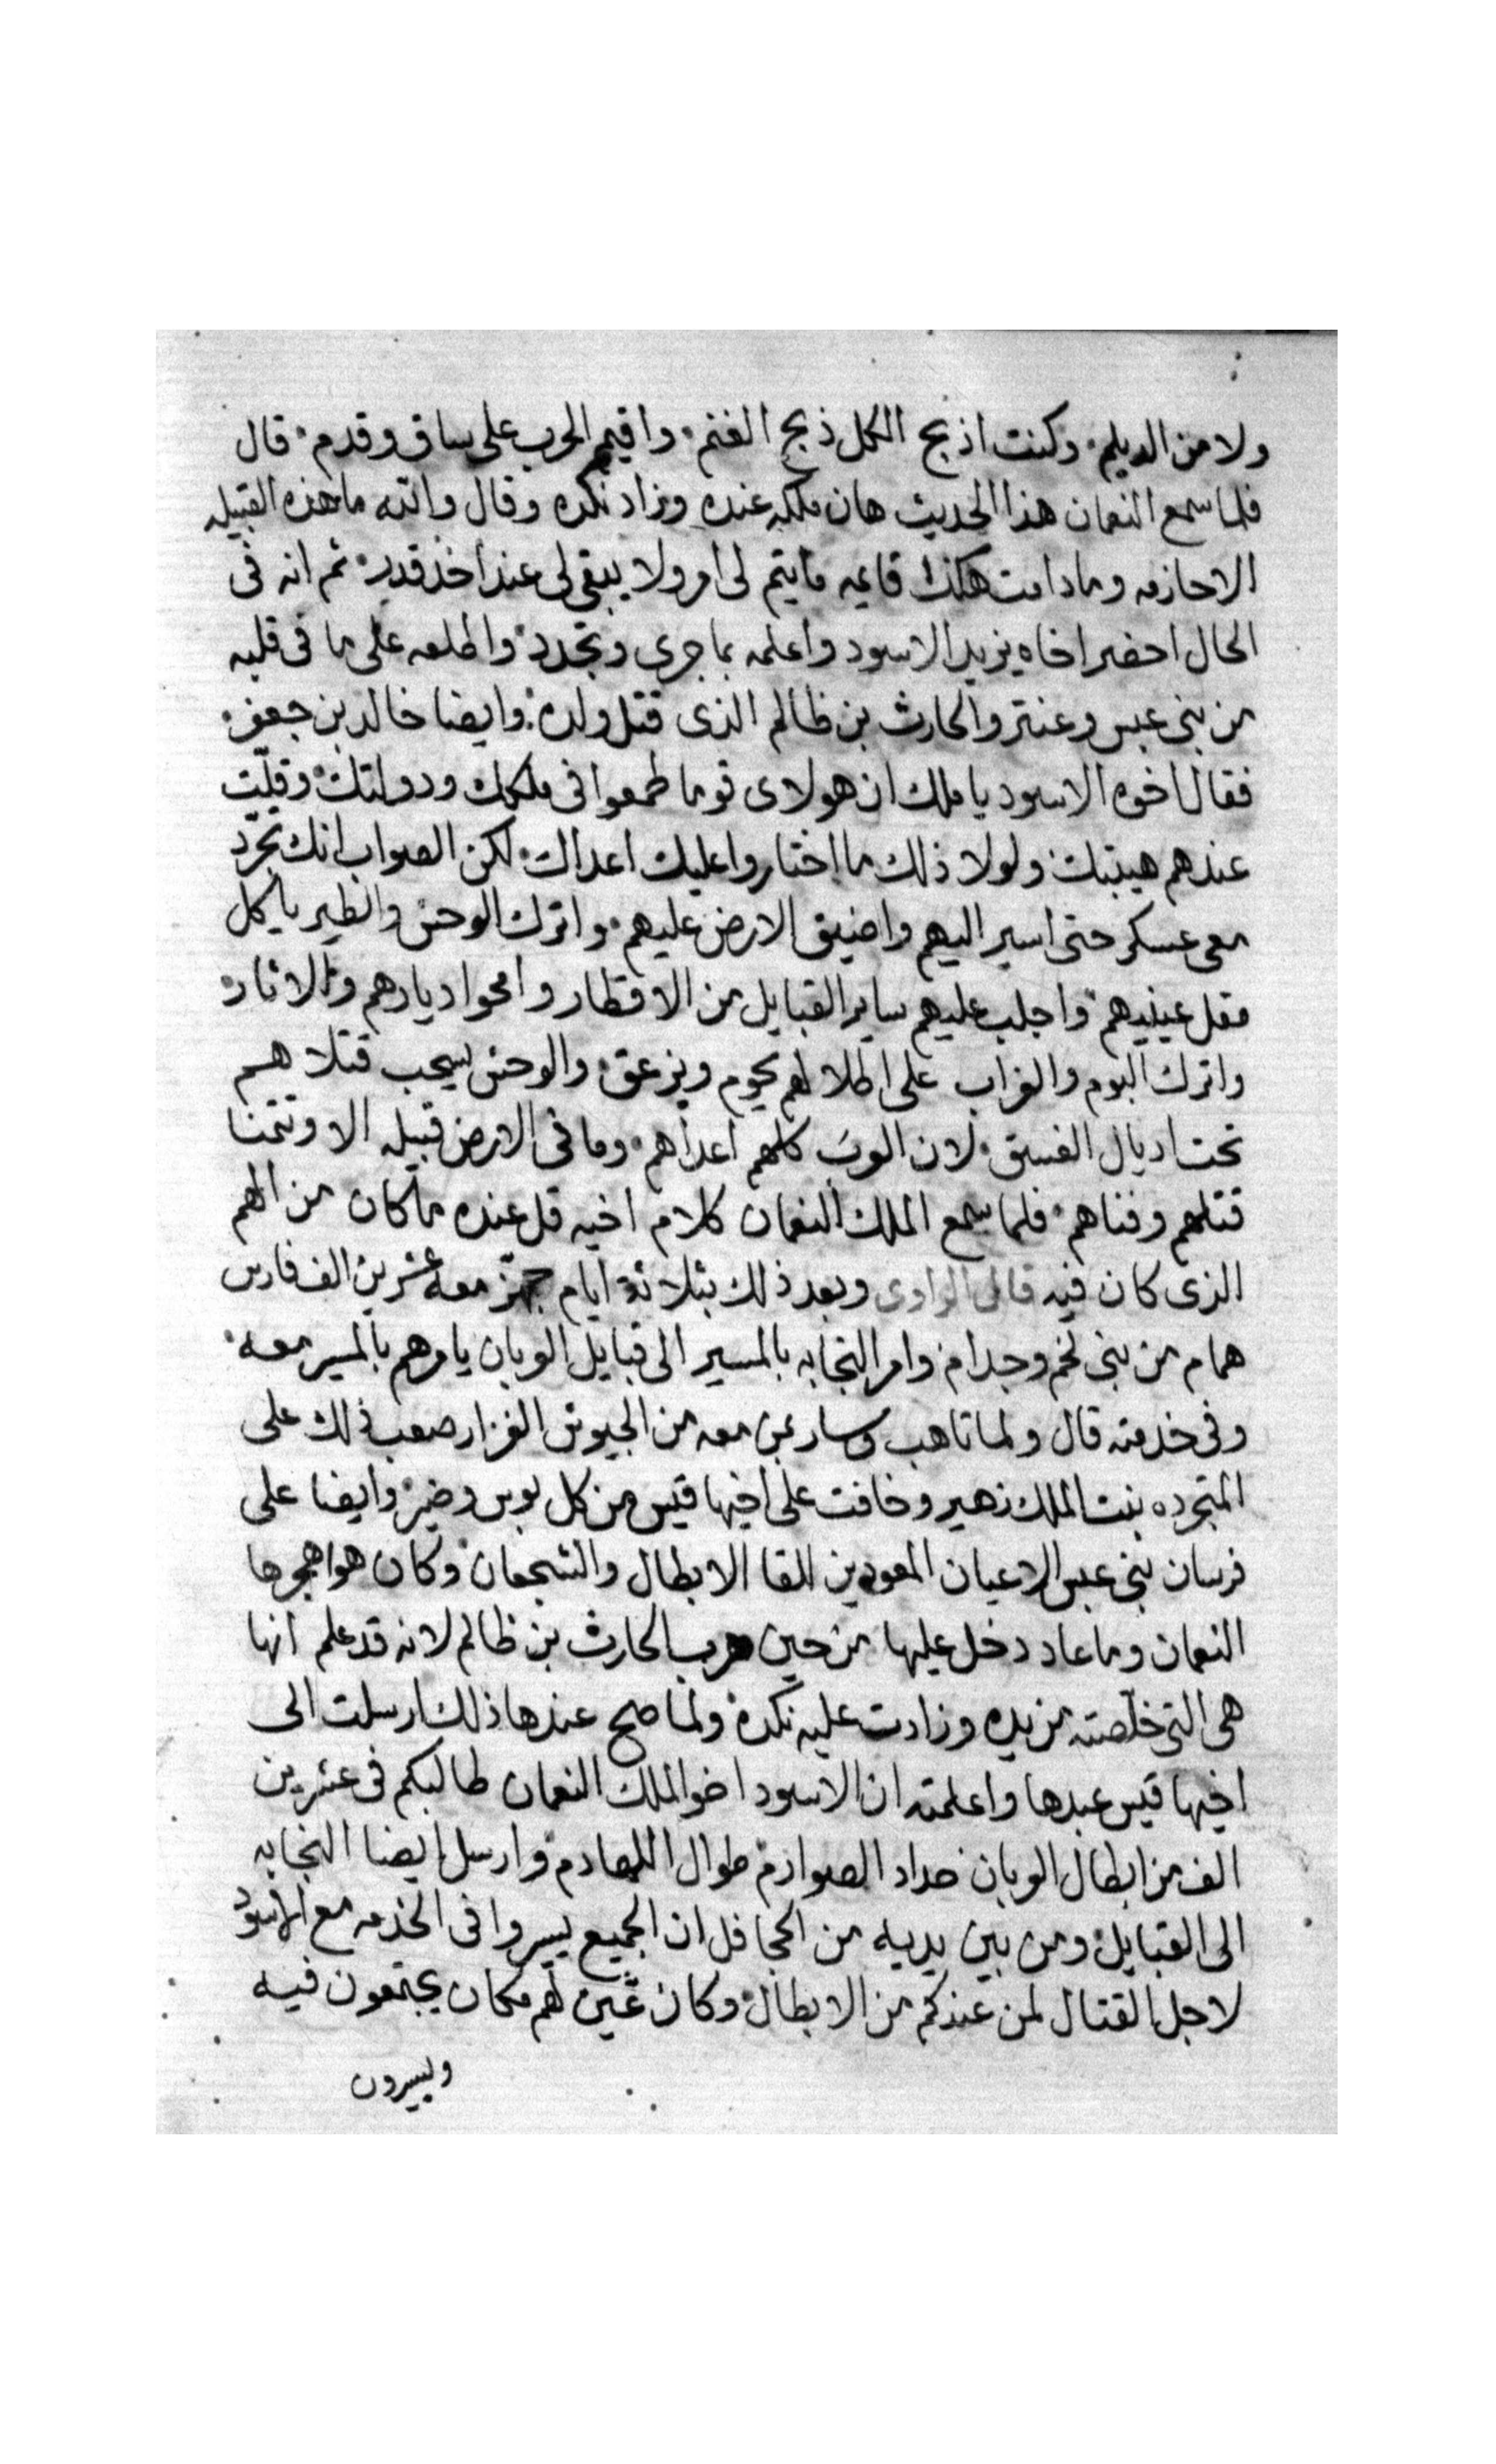 ولا من الديلم وكنت اذبح الكل ذبح الغنم واقيم الحرب على ساق وقدم قال
فلما سمع النعمان هذا الحديث هان ملكه عنده وزاد نكده وقال والله ما هذه القبيله
الا حازمه وما دامت هكذا قايمه ما يتم لى امر ولا يبقى لى عند احد قدر ثم انه فى
الحال احضر اخاه يزيد الاسود واعلمه بما جرى وتجدد واطلعه على ما فى قلبه
من بنى عبس وعنتر والحارث بن ظالم الذى قتل ولده وايضا خالد بن جعفر
فقال اخوه الاسود يا ملك ان هولاى قوما طمعوا فى ملكك ودولتك وقلّت
عندهم هيبتك ولولا ذلك ما اختاروا عليك اعداك لكن الصواب انك تجرّد
معى عسكر حتى اسير اليهم واضيق الارض عليهم واترك الوحش والطير ياكل
مقل عينيهم واجلب عليهم ساير القبايل من الاقطار وامحوا ديارهم والاثار
واترك البوم والغراب على اطلالهم يحوم ويزعق والوحش يسحب قتلاهم
تحت اديال الغسق لان العرب كلهم اعداهم وما فى الارض قبيله الا وتتمنا
قتلهم وفناهم فلما سمع الملك النعمان كلام اخيه قل عنده ما كان من الهم
الذى كان فيه قال الراوى وبعد ذلك بثلاثة ايام جهز معه عشرين الف فارس
همام من بنى لخم وجدام وامر النجابه بالمسير الى قبايل العربان يامرهم بالمسير معه
وفى خدمته قال ولما تاهب وسار بمن معه من الجيوش الغزار صعب ذلك على
المتجرده بنت الملك زهير وخافت على اخيها قيس من كل بوس وضير وايضا على
فرسان بنى عبس الاعيان المعودين للقا الابطال والشجعان وكان هو اهجرها
النعمان وما عاد دخل عليها من حين هرب الحارث بن ظالم لانه قد علم انها
هى التى خلّصته من يده وزادت عليه نكده ولما صح عندها ذلك ارسلت الى
اخيها قيس عبدها واعلمته ان الاسود اخو الملك النعمان طالبكم فى عشرين
الف من ابطال العربان حداد الصوارم طوال اللهادم وارسل ايضا النجابه
الى القبايل ومن بين يديه من الجحافل ان الجميع يسيروا فى الخدمه مع الاسود
لاجل القتال لمن عندكم من الابطال وكان عيّن لهم مكان يجتمعون فيه
ويسيرون